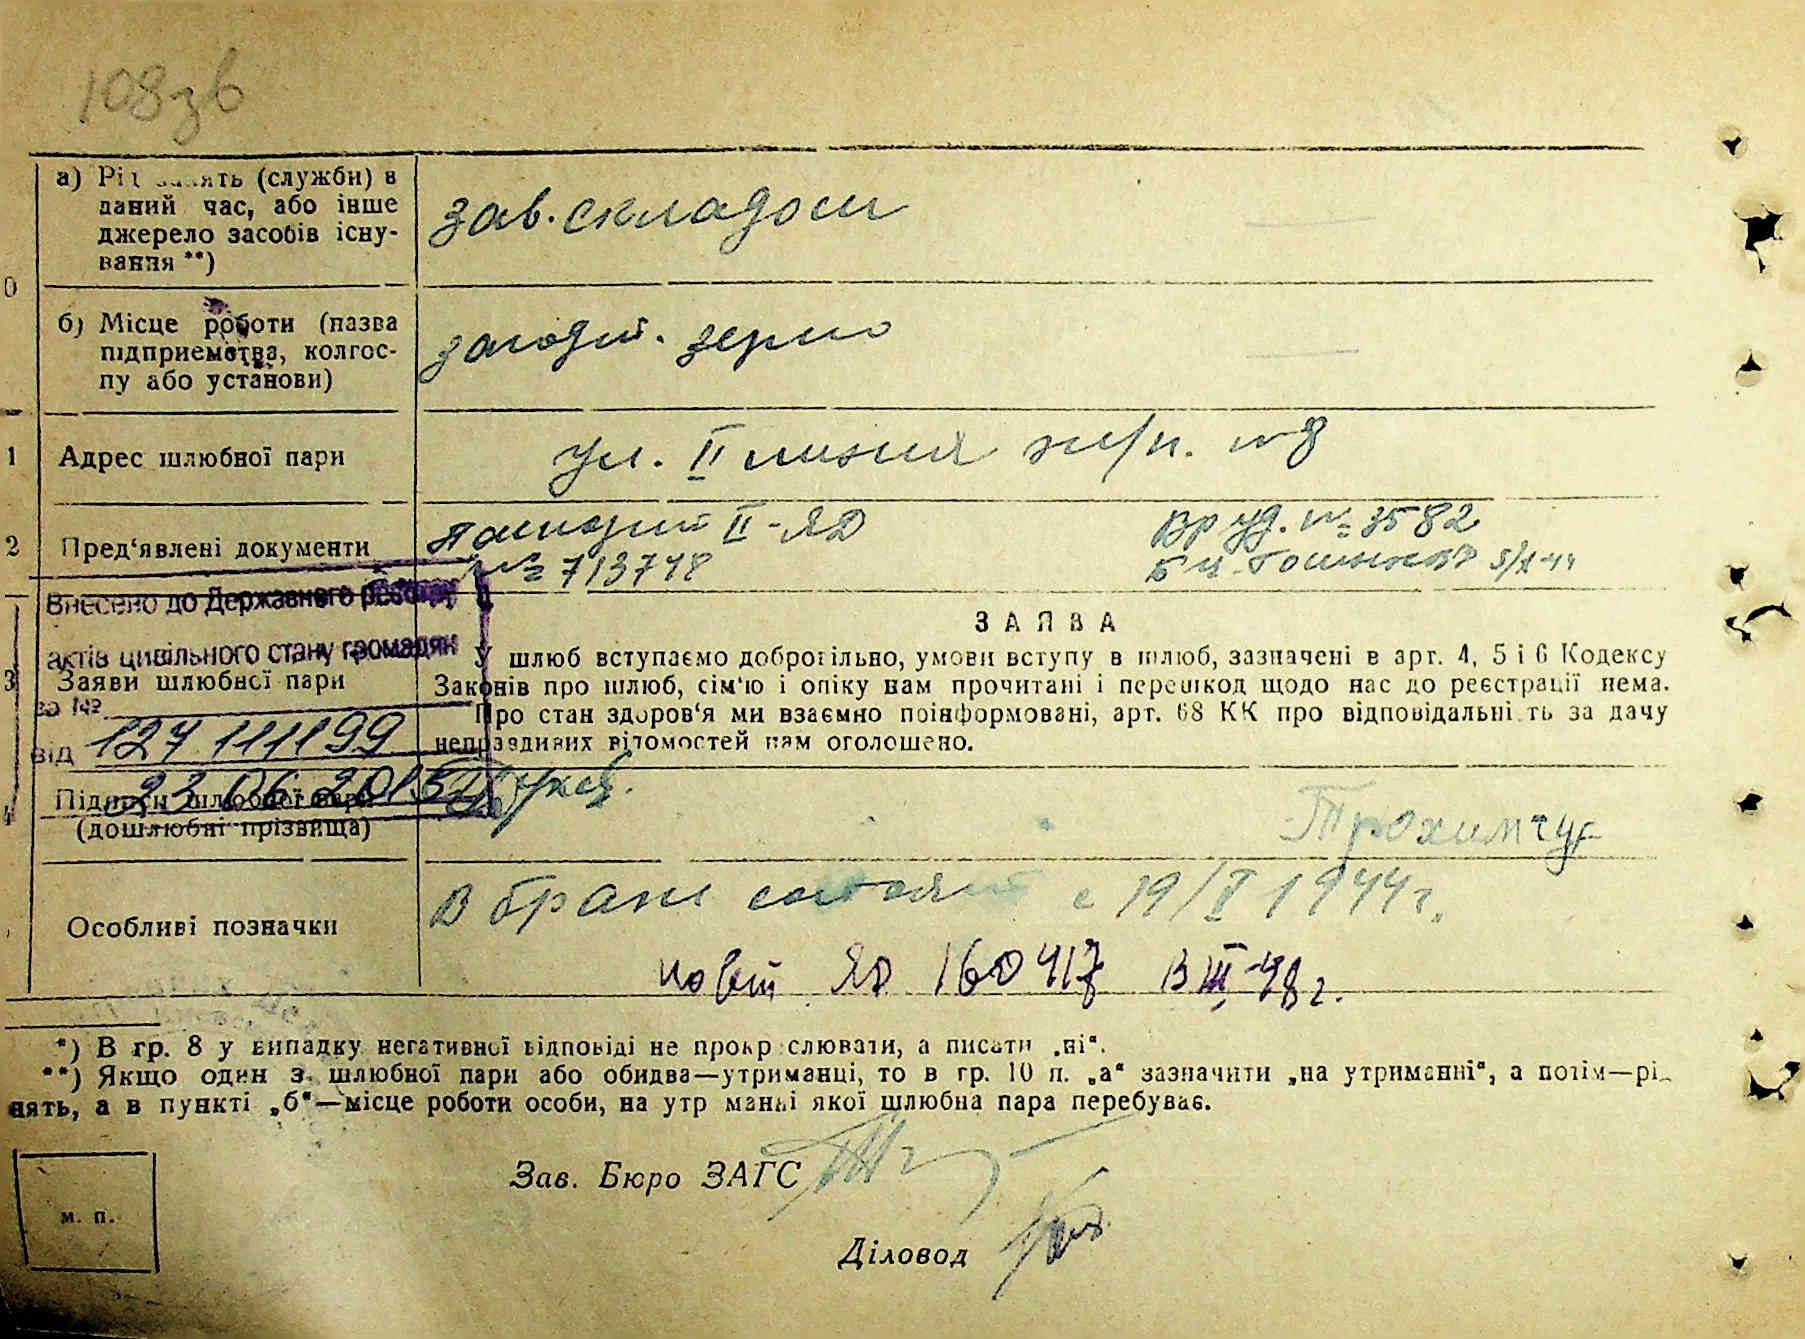 108зв
а) Рід занять (служби) в
даний час, або інше
джерело засобів існу-
вання **)
зав. складом
0
б) Місце роботи (назва
підприємства, колгос-
пу або установи)
заготй. зерно
1 Адрес шлюбної пари
ул. II линия ж/п. №8
2 Пред'явлені документи
Паспорт II-ЯД
№ 713748
Вр уд. № 3582
Внесено до Державного реєстру
актів цивільного стану громадян
за №
від 127 111199
23.06.2015
З А Я В А
3 Заяви шлюбної пари
У шлюб вступаємо добровільно, умови вступу в шлюб, зазначені в арт. 4, 5 і 6 Кодексу
Законів про шлюб, сім'ю і опіку нам прочитані і перешкод щодо нас до реєстрації нема.
Про стан здоров'я ми взаємно поінформовані, арт. 68 КК про відповідальність за дачу
неправдивих відомостей нам оголошено.
4 Підписи шлюбної пари
(дошлюбні прізвища)
Трохимчук
Особливі позначки
В браке состоят с 19/I 1944 г.
новый ЯД 160417 В III-48 г.
*) В гр. 8 у випадку негативної відповіді не прокреслювати, а писати „ні“.
**) Якщо один з шлюбної пари або обидва—утриманці, то в гр. 10 п. „а“ зазначити „на утриманні“, а потім—рі
нять, а в пункті „б“—місце роботи особи, на утр манні якої шлюбна пара перебуває.
Зав. Бюро ЗАГС
м. п.
Діловод